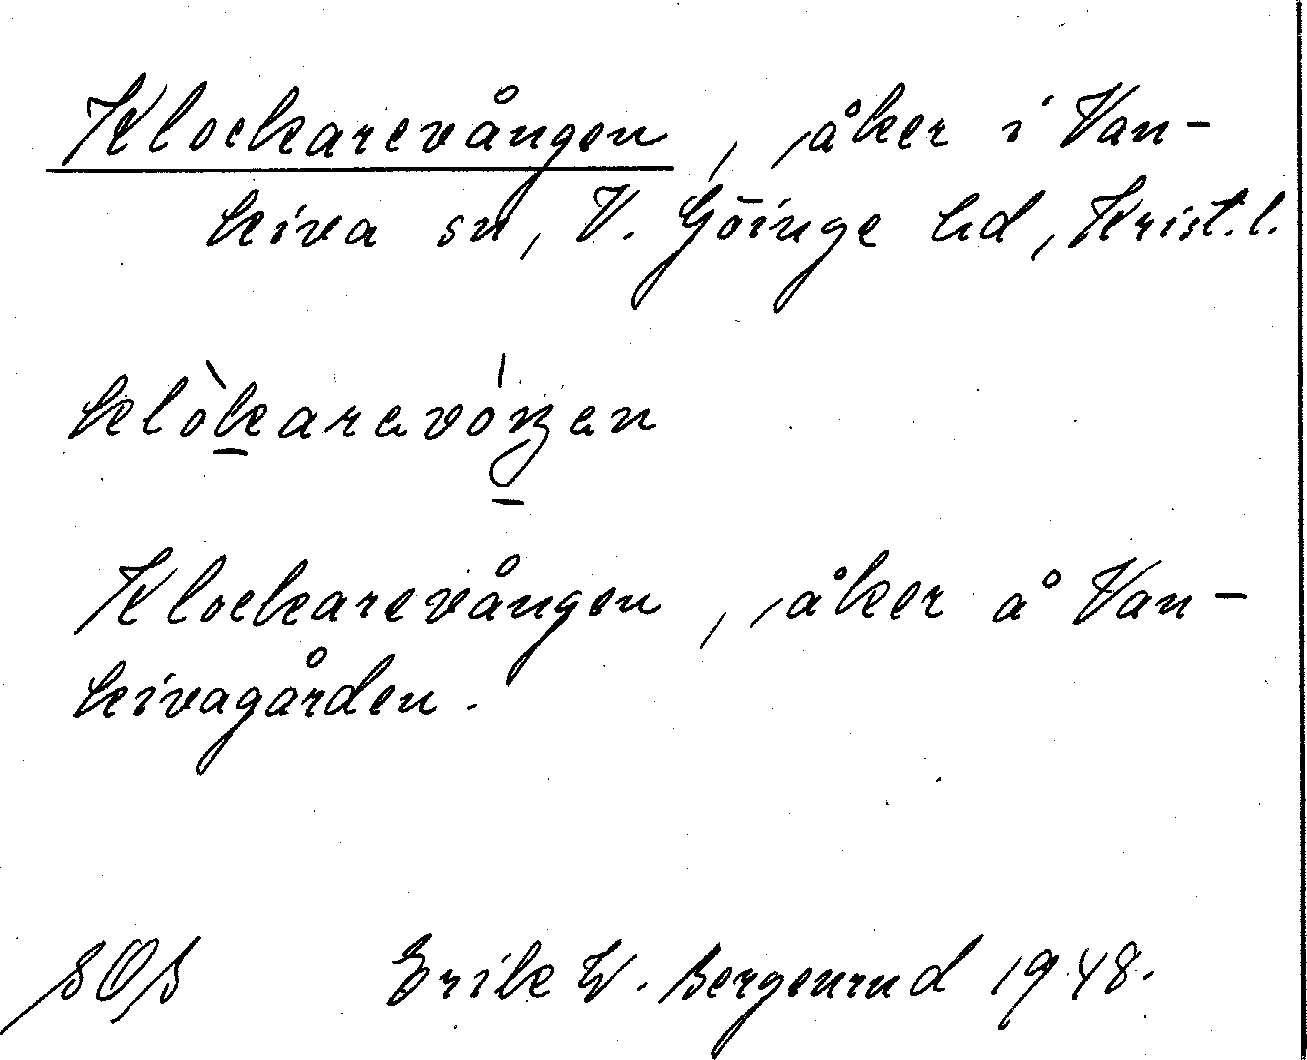 Klockarevången, åker i Van-
kiva sn, V. Göinge hd, Krist.l.
klò̱karavóŋ̱an
Klockarevången, åker å Van-
kivagården.
Erik W. Bergenrud 1948.